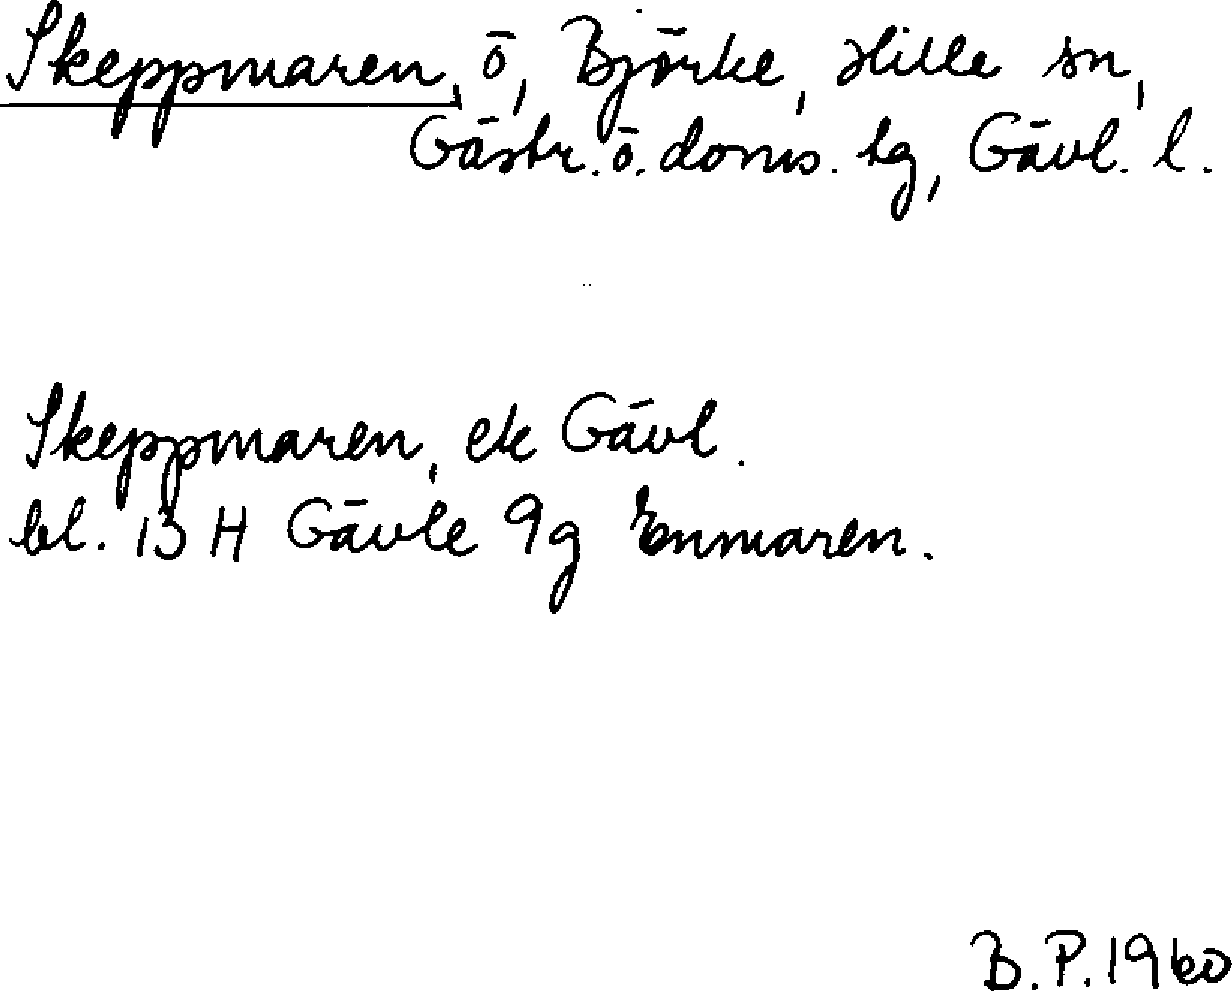 Skeppmaren, ö, Björke, Hille sn,
Gästr. ö. doms. tg, Gävl. l.
Skeppmaren, ek Gävl.
bl. 13 H Gävle 9g Enmaren.
B. P. 1960